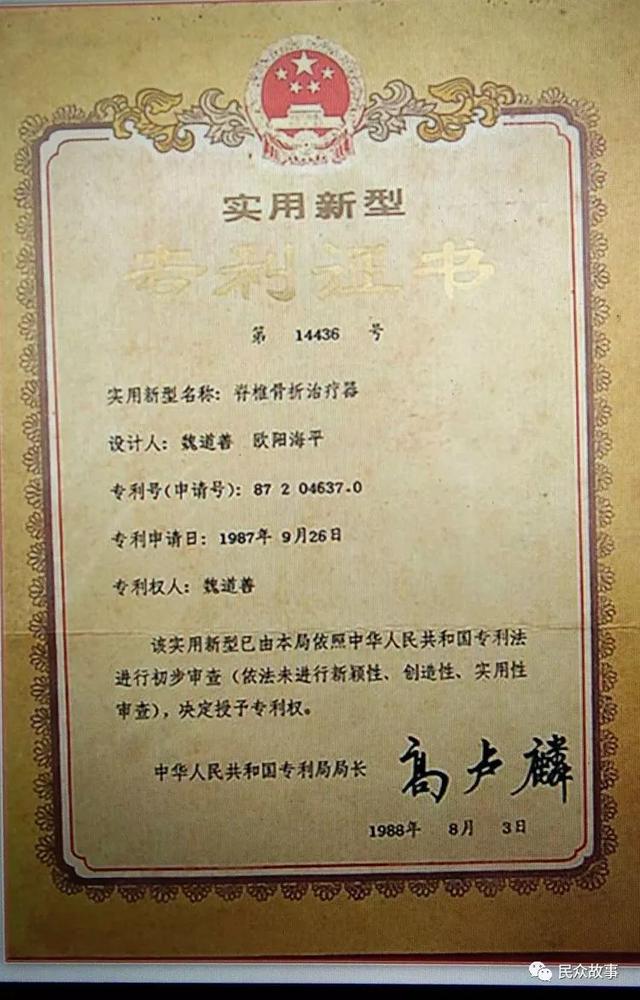 实用新型
专利证书
第 14436 号
实用新型名称：脊椎骨折治疗器
设计人：魏道善 欧阳海平
专利号(申请号)：87 2 04637.0
专利申请日：1987年 9月26日
专利权人：魏道善
该实用新型已由本局依照中华人民共和国专利法
进行初步审查（依法未进行新颖性、创造性、实用性
审查），决定授予专利权。
中华人民共和国专利局局长 高卢麟
1988年 8月 3日
民众故事